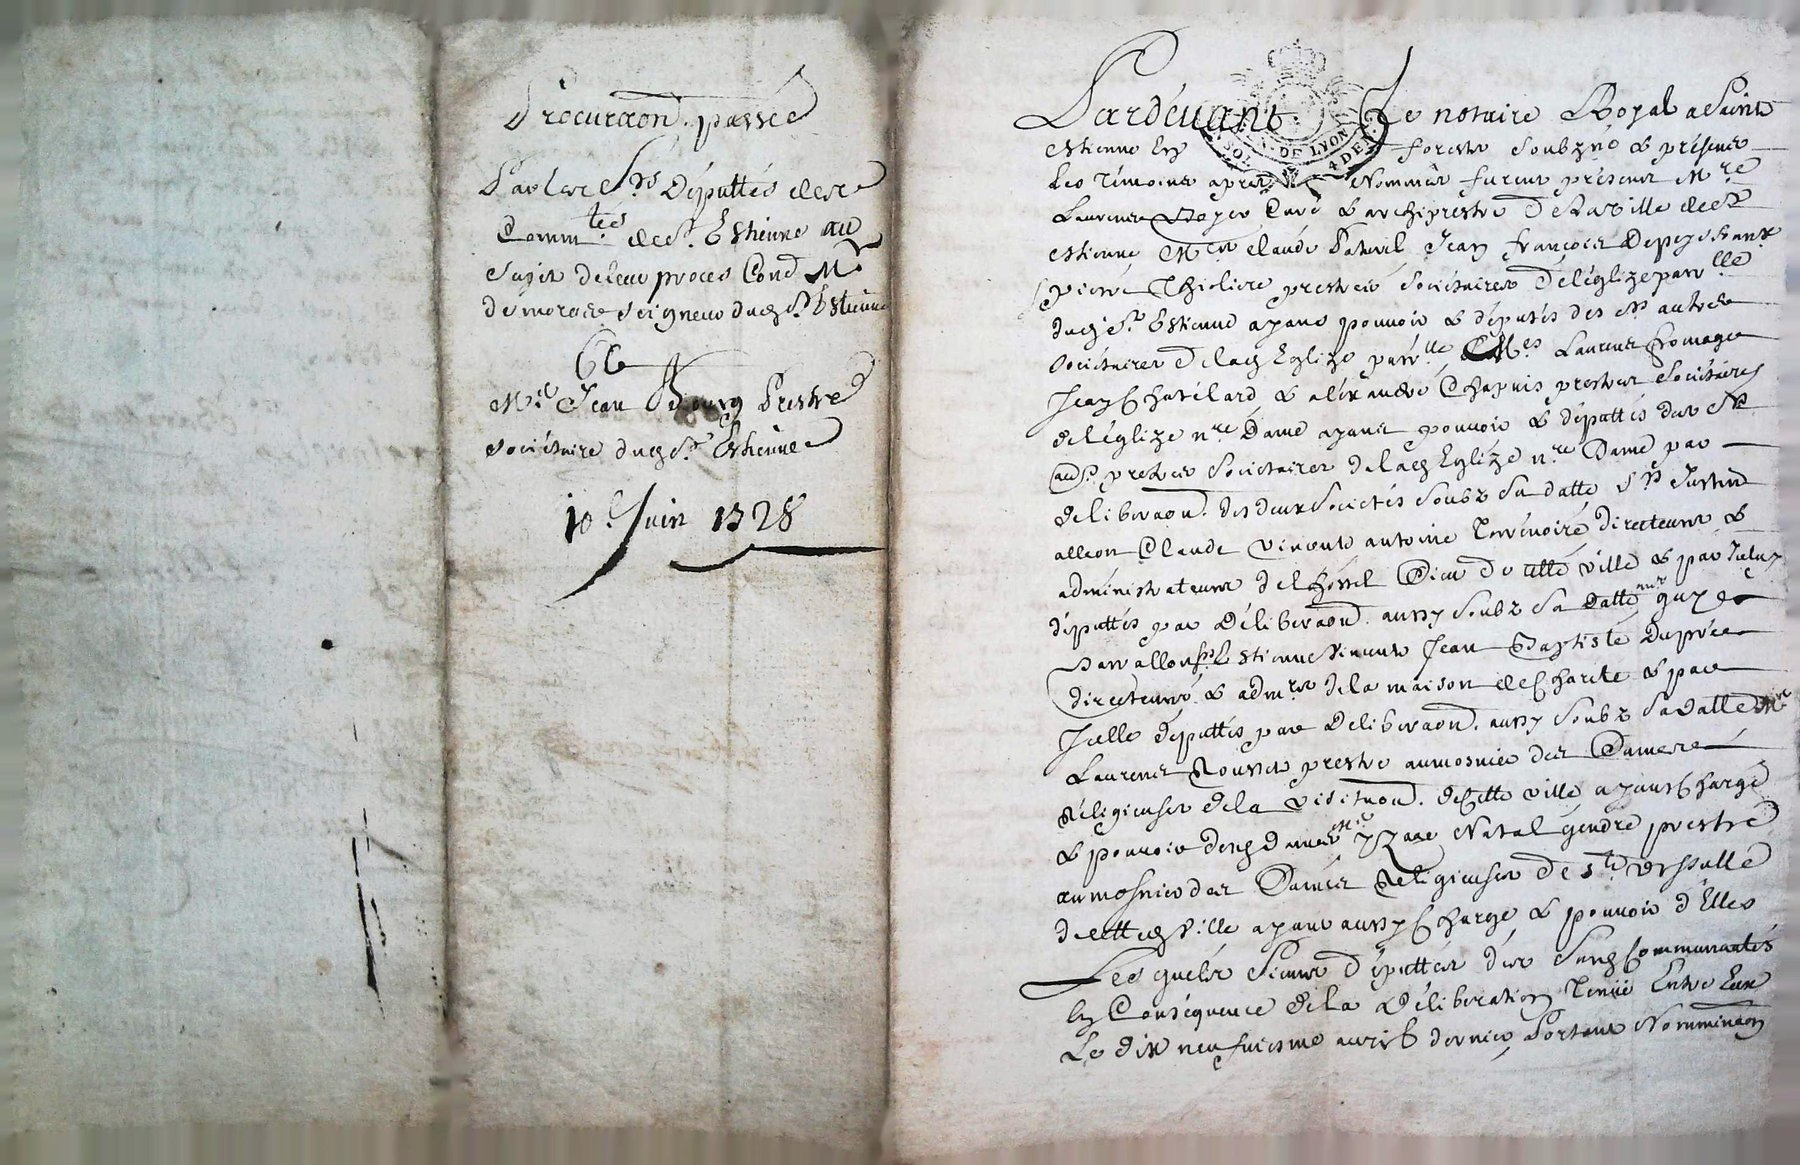 Procuraôn. passée
Par les Srs Députtés des
Comm.tés de St. Estienne au
sujet de leur proces Cond Mr
de moras Seigneur dud St. Estienne
a
Mre Jean Prestre
sociétaire dud St. Estienne
10e Juin 1728
Pardevant Le notaire Royal a Saint
Estienne En forests soubzné & présens
Les témoins apres Nommés furent présens Mre
Laurens Curé & archiprestre de la ville de St
Estienne Mes Claude Jean François
pierre Thioliere prestres Sociétaires de l'églize parrlle
dud St. Estienne ayans pouvoir & députés des Srs autres
sociétaires de lad Eglize parrlle Mes Laurens fromage
Jean Chatelard & aléxandre Chapuis prestres Sociétaires
de l'églize nre Dame ayans pouvoir & députtés des Srs
aus. prestres Sociétaires de lad Eglize nre Dame par
deliberaôn. des deux Sociétés soubz sa datte Srs
alléon Claude vincent antoine directeurs &
administrateurs de l'hôtel Dieu de cette ville & par Icelux
députtés par déliberaôn. aussy soubz sa datte guy
Estienne vincent Jean Baptiste Dupré
directeurs & admrs de la maison de Charité & par
Icelle députtés par deliberaôn. aussy soubz sa datte Mre
Laurens Rousset prestre aumosnier des Dames
Réligieuses de la visitaôn. de Cette ville ayant Charge
& pouvoir desd dames Mre Natal gendre prestre
aumosnier des Dames Réligieuses de Ste Urssulle
de cette ville ayant aussy Charge & pouvoir d'Elles
Lesquels Sieurs députtés des Susd Communautés
En Conséquence de la déliberation Tenüe Entre Eux
Le dix neufviesme avril dernier Portant Nomminaôn
DE LYON
SOL
4 DEN.